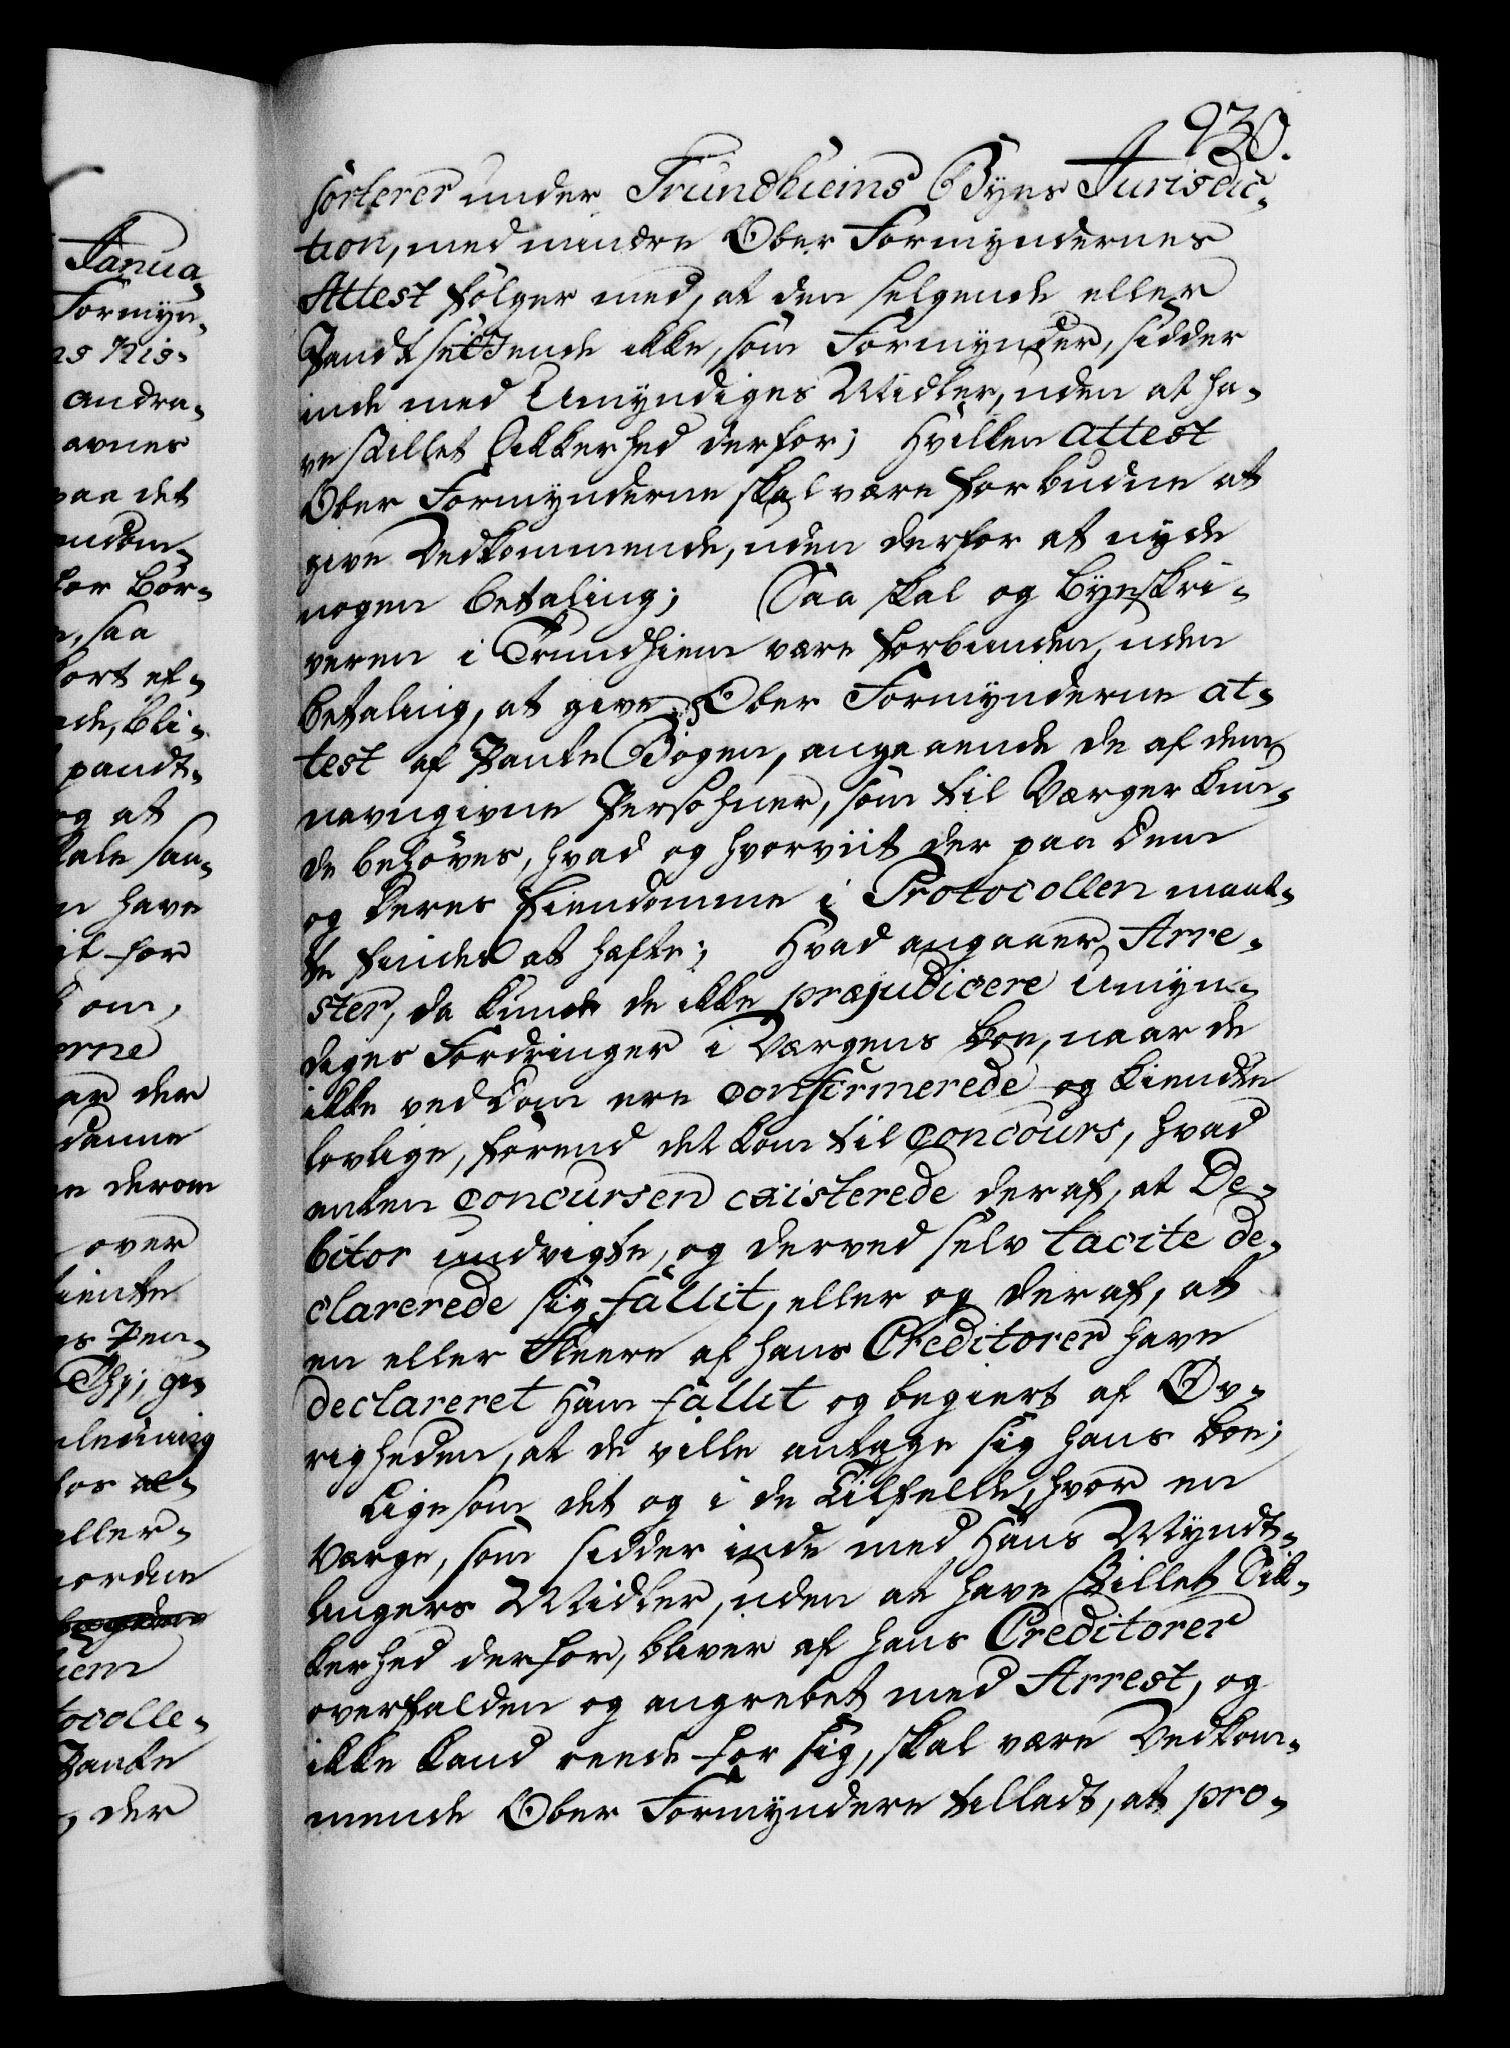 Janua-
Formyn-
ns Nis-
andra-
avnes
paa det
endom-
for Bør-
, saa
fort ef-
ede, bli-
pandt-
og at
kale saa-
n have
it for
om,
erne
ar der
danne
n derom
over
tiente
es Pen-
Thi, gi-
aledning
hos al-
aller-
norden
iem
tocolle-
Pante
, der
930.
sorterer under Trundhiems Byes Jurisdic-
tion, med mindre Ober Formyndernes
Attest følger med, at den selgende eller
Pandtsettende ikke, som Formynder, sidder
inde med Umyndiges Midler, uden at ha-
ve stillet Sikkerhed derfor; Hvilken attest
Ober Formynderne skal være forbudne at
give Vedkommende, uden derfor at nyde
nogen betaling; Saa skal og byeskri-
veren i Trundhiem være forbunden, uden
betaling, at give Ober Formynderne at-
test af Pante Bogen, angaaende de af dem
navngivne Persohner, som til Værger kun-
de behøves, hvad og hvorviit der paa dem
og deres Eiendomme i Protocollen maat-
te findes at hæfte; Hvad angaaer Arre-
ster, da kunde de ikke præjudicere Umyn-
diges Fordringer i Værgens boe, naar de
ikke ved Dom ere confirmerede og kiendte
lovlige, førend det kom til concours, hvad
enten concursen existerede deraf, at De-
bitor undvigte, og derved selv tacite de-
clarerede sig fallit, eller og deraf, at
en eller fleere af hans Creditorer have
declareret ham fallit og begiert af Øv-
righeden, at de ville antage sig hans boe;
Ligesom det og i de Tilfelde, hvor en
Værge, som sidder inde med hans Myndt-
lingers Midler, uden at have stillet Sik-
kerhed derfor, bliver af hans Creditorer
overfalden og angrebet med Arrest, og
ikke kand reede for sig, skal være Vedkom-
mende Ober Formyndere tilladt, at pro-